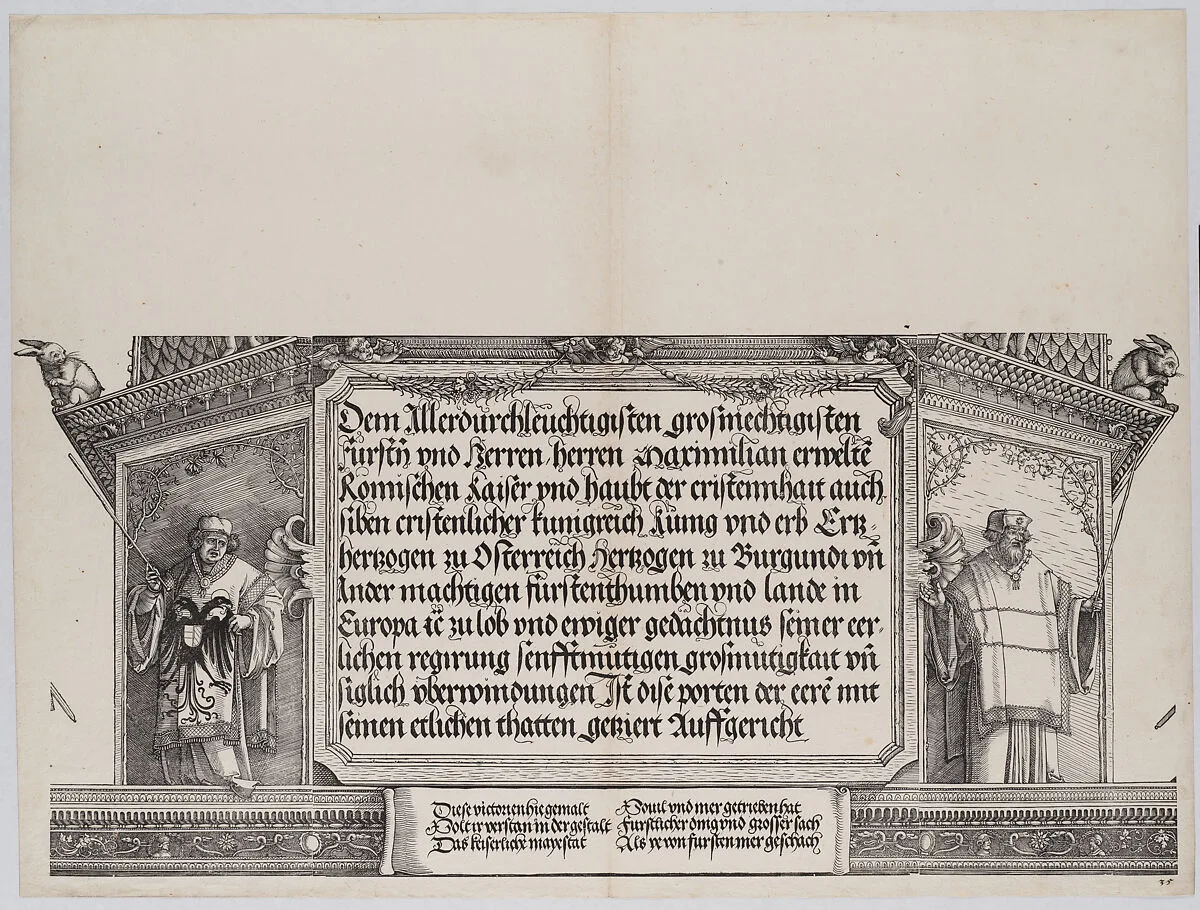 Dem Allerdurchleuchtigisten grosmechtigisten
furstn̄ vnd Herren herren Maximilian erweltē
Romischen Kaiser vnd haubt der cristennhait auch
siben cristenlicher kunigreich Kunig vnd erb Ertz-
hertzogen zu Osterreich Hertzogen zu Burgundi vn̄
Ander machtigen furstenthumben vnd lande in
Europa ꝛc̄ zu lob vnd ewiger gedachtnus seiner eer-
lichen regirung senfftmutigen grosmutigkait vn̄
siglich vberwindungen Ist dise porten der eerē mit
seinen etlichen thatten getziert Auffgericht
Diese victorien hie gemalt
Solt ir verstan in der gestalt
Das keiserliche mayestat
Souil vnd mer getrieben hat
Furstlicher ding vnd grosser sach
Als ye von fursten mer geschach
35